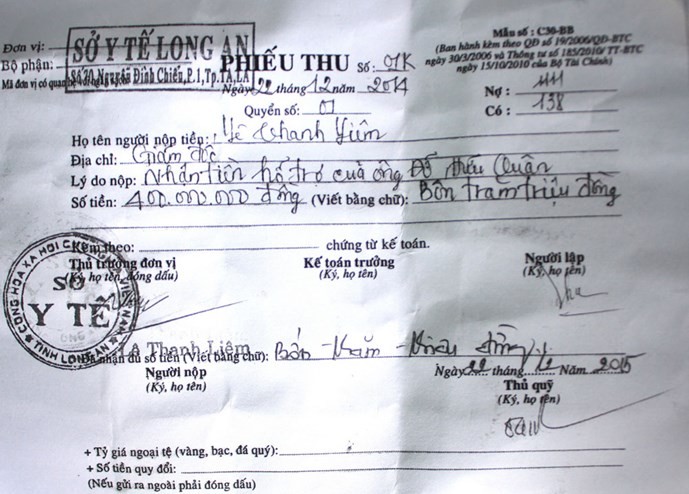 Đơn vị:
SỞ Y TẾ LONG AN
Bộ phận:
Số 70, Nguyễn Đình Chiểu, P.1, Tp.TA, LA
Mã đơn vị có quan hệ
Mẫu số : C30-BB
(Ban hành kèm theo QĐ số 19/2006/QĐ-BTC
ngày 30/3/2006 và Thông tư số 185/2010/TT-BTC
ngày 15/10/2010 của Bộ Tài Chính)
PHIẾU THU Số: 01K
Ngày 22 tháng 12 năm 2014
Quyển số: 01
Nợ : 1111
Có : 138
Họ tên người nộp tiền: Lê Thanh Liêm
Địa chỉ: Giám đốc
Lý do nộp: Nhận tiền hổ trợ của ông Đỗ Hữu Quận
Số tiền: 400.000.000 đồng (Viết bằng chữ): Bốn trăm triệu đồng
Kèm theo: chứng từ kế toán.
Thủ trưởng đơn vị Kế toán trưởng Người lập
(Ký, họ tên, đóng dấu) (Ký, họ tên) (Ký, họ tên)
CỘNG HÒA XÃ HỘI VIỆT NAM
SỞ
Y TẾ
TỈNH LONG AN
Lê Thanh Liêm
Đã nhận đủ số tiền (Viết bằng chữ): Bốn trăm triệu đồng
Ngày 22 tháng Năm 2015
Người nộp Thủ quỹ
(Ký, họ tên) (Ký, họ tên)
+ Tỷ giá ngoại tệ (vàng, bạc, đá quý):
+ Số tiền quy đổi:
(Nếu gửi ra ngoài phải đóng dấu)